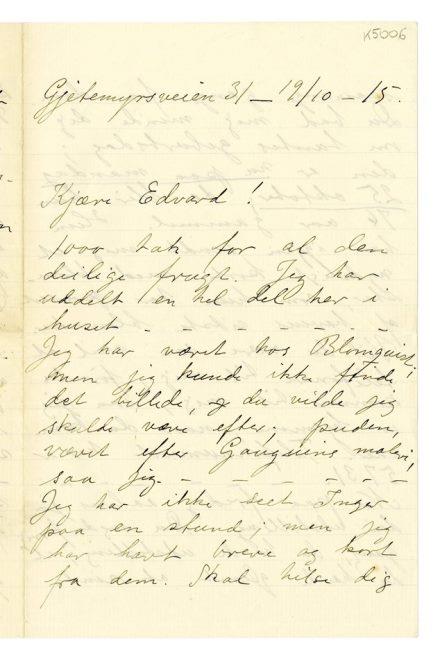 K5006
Gjetemyrsveien 31 — 19/10 – 15.
Kjære Edvard!
1000 tak for al den
deilige frugt. Jeg har
uddelt en hel del her i
huset - - - - - -
Jeg har været hos Blomquist;
men jeg kunde ikke finde
det billede, du vilde jeg
skulde være efter; puden,
været efter Gauguins maleri,
saa jeg. - - - - - -
Jeg har ikke seet Inger
paa en stund; men jeg
har havt breve og kort
fra dem. Skal hilse dig